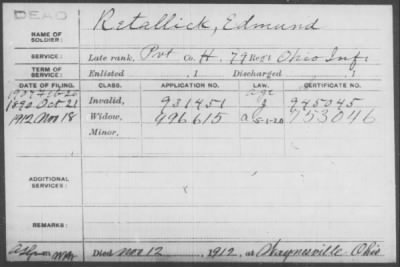 DEAD
Retallick, Edmund
NAME OF SOLDIER:
SERVICE: Late rank, Pvt Co. H, 79 Reg't Ohio Inf.
TERM OF SERVICE: Enlisted , 1 Discharged , 1
DATE OF FILING. CLASS. APPLICATION NO. LAW. CERTIFICATE NO.
1890 Oct 21 Invalid, 931451 J 945045
1912 Nov 18 Widow, 996615 a 5-1-20 753046
Minor,
ADDITIONAL SERVICES:
REMARKS:
Died Nov 12, 1912, at Waynesville Ohio